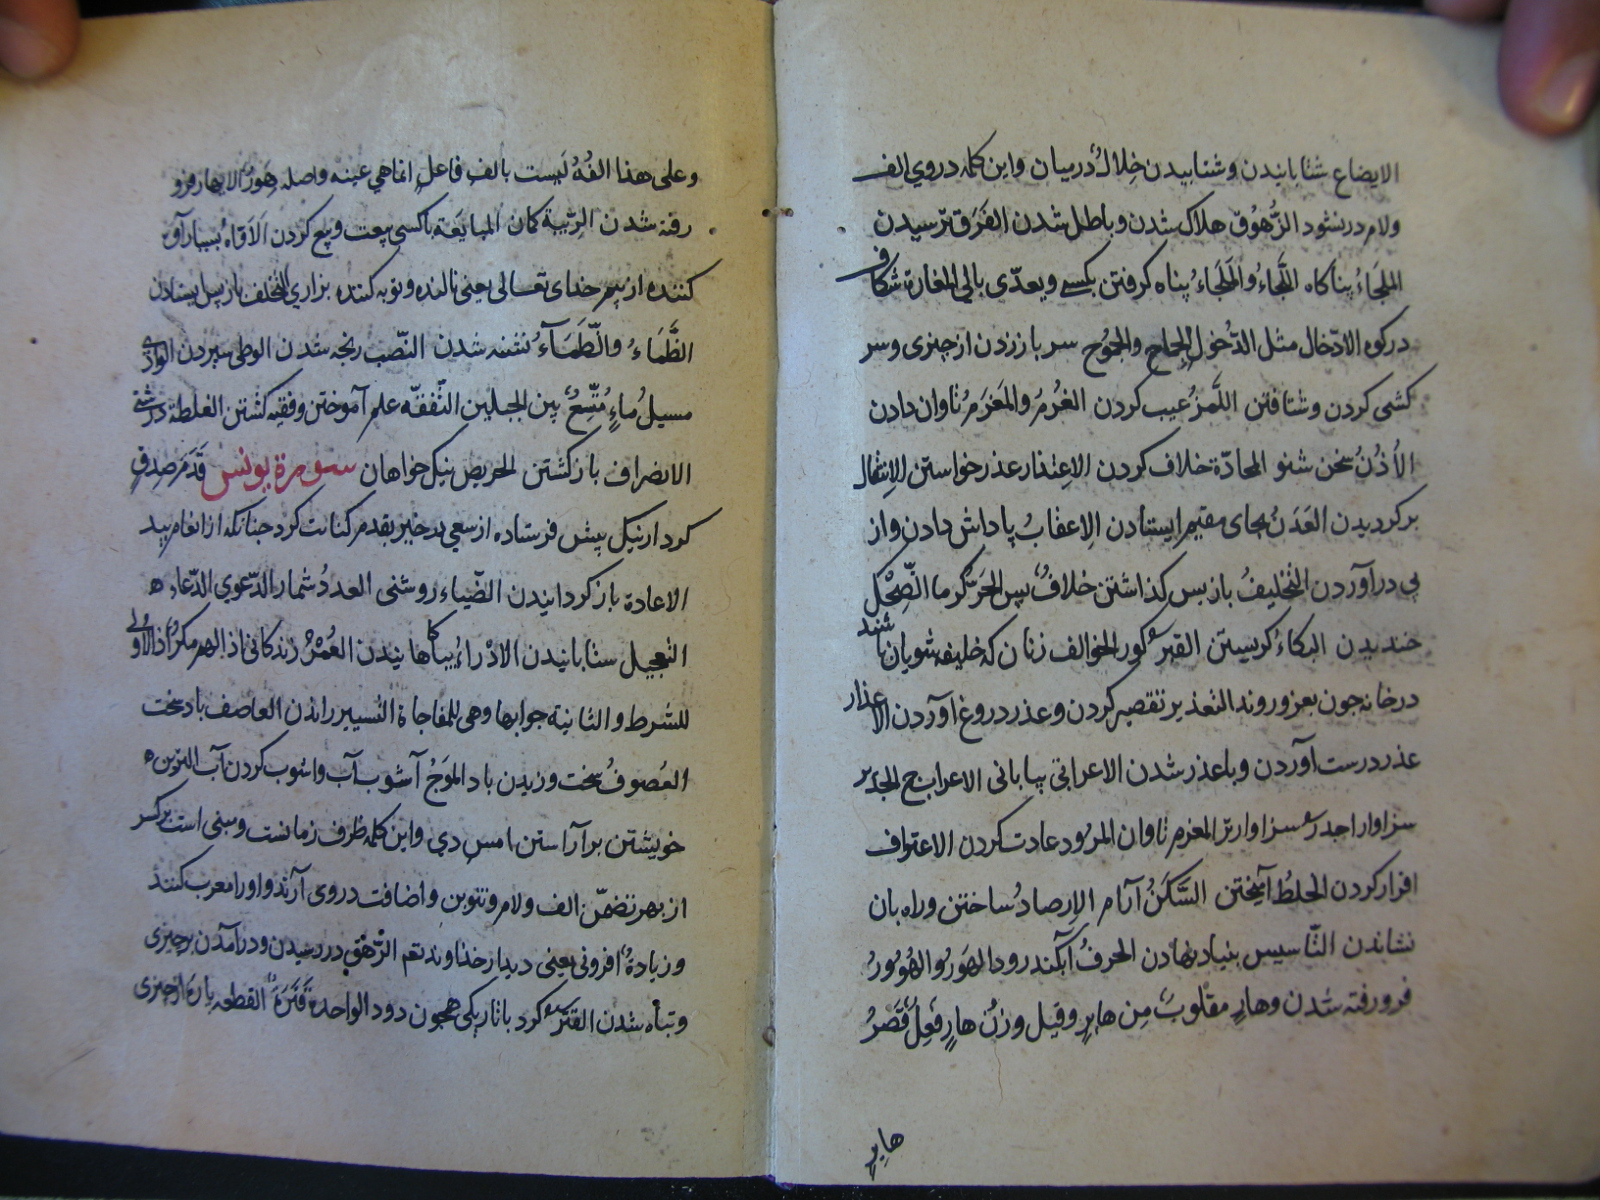 الايضاع شتابانيدن و شتابيدن خِلالٌ درميان واين كلمه در وي الف
ولام در نشود الزُّهُوُق هلاك شدن و باطل شدن الفَرَق ترسيدن
الملجَاءُ پناكاه اللَّجَاءُ والمَلجَاءُ پناه كرفتن بكسي ويعدّى بالى المغارة شكاف
در كوه الادّخال مثل الدُّخول الجِماح والجمُوح سر باز زدن از چيزى و سر
كشى كردن و شتافتن اللَّمزُ عيب كردن الغُرْمُ والمَغرَمُ تاوان دادن
الاُذُنُ سخن شنو المحادّة خلاف كردن الاِعتذار عذر خواستن الاِنتقال
بر كرديدن العَدَنُ بجاى مقيم ايستادن الاِعقابُ پاداش دادن واز
پى در آوردن التّخليفُ باز پس كذاشتن خلافٌ پس الحَرُّ كرما الضِّحْكُ
خنديدن البكاءُ كريستن القبر كور الخوالف زنان كه خليفه شويان باشند
در خانه چون بغزو روند التعذير تقصير كردن و عذر دروغ آوردن الاعذار
عذر درست آوردن و با عذر شدن الاعرابى بيابانى الاعراب ج الجدير
سزاوار اجدر سزاوارتر المغرم تاوان المرُود عادت كردن الاعتراف
اقرار كردن الخلطُ آميختن السَّكَنُ آرام الاِرصادُ ساختن و راه بان
نشاندن التّأسيس بنياد نهادن الجرفُ آبكند رود الهَورُ والهُوُورُ
فرو رفته شدن وهارٍ مقلوبٌ مِن هايرٍ وقيل وزنُ هارٍ فَعِلٌ قَصْرُ
هايرٍ
وعلى هذا الفُهُ لَيست بالفِ فاعلٍ انما هي عينه واصله هَوِرٌ الانهيار فرو
رفته شدن الرِّيبة كمان المبايَعَة باكسى بيعت وبيع كردن الاَوّاه بسيار آوه
كننده از بيم خداى تعالى يعنى نالنده و توبه كننده بزاري التخلف باز پس ايستادن
الظَّمَاءُ والظَّمَآءُ تشنه شدن النّصَب رنجه شدن الوطى سپردن الوادي
مسيلُ ماءٍ مُتَّسِعٌ بين الجبلين التّفقّه علم آموختن و فقيه كشتن الغلظة درشتى
الانصراف باز كشتن الحريص نيك خواهان سورة يونس قَدَمَ صِدقٍ
كردار نيك پيش فرستاده از سعي در خير بقدم كنايت كرد چنانكه از انعام بيد
الاعادة باز كردانيدن الضّياء روشنى العددُ شمار الدّعوي الدّعاء ه
التعجيل شتابانيدن الادْراءُ بياكاهانيدن العُمْرُ زندكانى اذا لهم مكرٌ اذا الاُولى
للشرط والثانية جوابها وهي للمفاجاة التسيير راندن العاصف باد سخت
العُصوفُ سخت وزيدن باد المَوَجُ آشوب آب و اشوب كردن آب التزين ه
خويشتن بر آراستن امسِ دي واين كلمه ظرف زمانست ومبنى است بر كسر
از بهر تضمّن الف ولام و تنوين و اضافت در وى آرند و اورا معرب كنند
وزيادةٌ افزونى يعنى ديدار خداوند تعم الرَّهْق در رسيدن و در آمدن بر چيزى
و تباه شدن القَتَر كرد با تاريكى همچون دود الواحدة قَتَرَةٌ القطعه پاره از چيزى